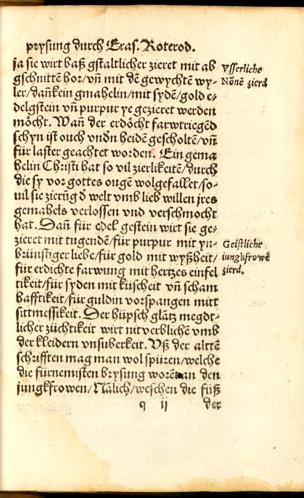 prysung durch Eras. Roterod.
ja sie wirt baß gstaltlicher zieret mit ab
gschnittē hor/ vñ mit dē gewychtē wy-
ler/ dañ kein gmahelin/ mit sydē/ gold e-
delgstein vñ purpur ye gezieret werden
möcht. Wañ der erdöcht farwtriegēd
schyn ist ouch vndn heidē gescholtē/ vñ
für laster geachtet worden. Ein gema
helin Christi hat so vil zierlikeitē/ durch
die sy vor gottes ougē wolgefallet/ so-
uil sie zierūg d welt vmb lieb willen jres
gemahels verlossen vnd verschmocht
hat. Dañ für edel gestein wirt sie ge-
zieret mit tugendē/ für purpur mit yn-
brünstiger liebe/ für gold mit wyßheit/
für erdichte farwung mit hertzes einfel
tikeit/ für syden mit küscheit vñ scham
hafftikeit/ für guldin vorspangen mitt
sittmessikeit. Der hüpsch glātz megdt-
licher züchtikeit wirt nit verblichē vmb
der kleidern vnsuberkeit. Vß der altē
schrifften mag man wol spüren/ welche
die fürnemisten brysung worē an den
jungkfrowen/ Nālich/ weschen die füß
q ij der
vsserliche
Nōnē zierd
Geistliche
jungkfrowē
zierd.